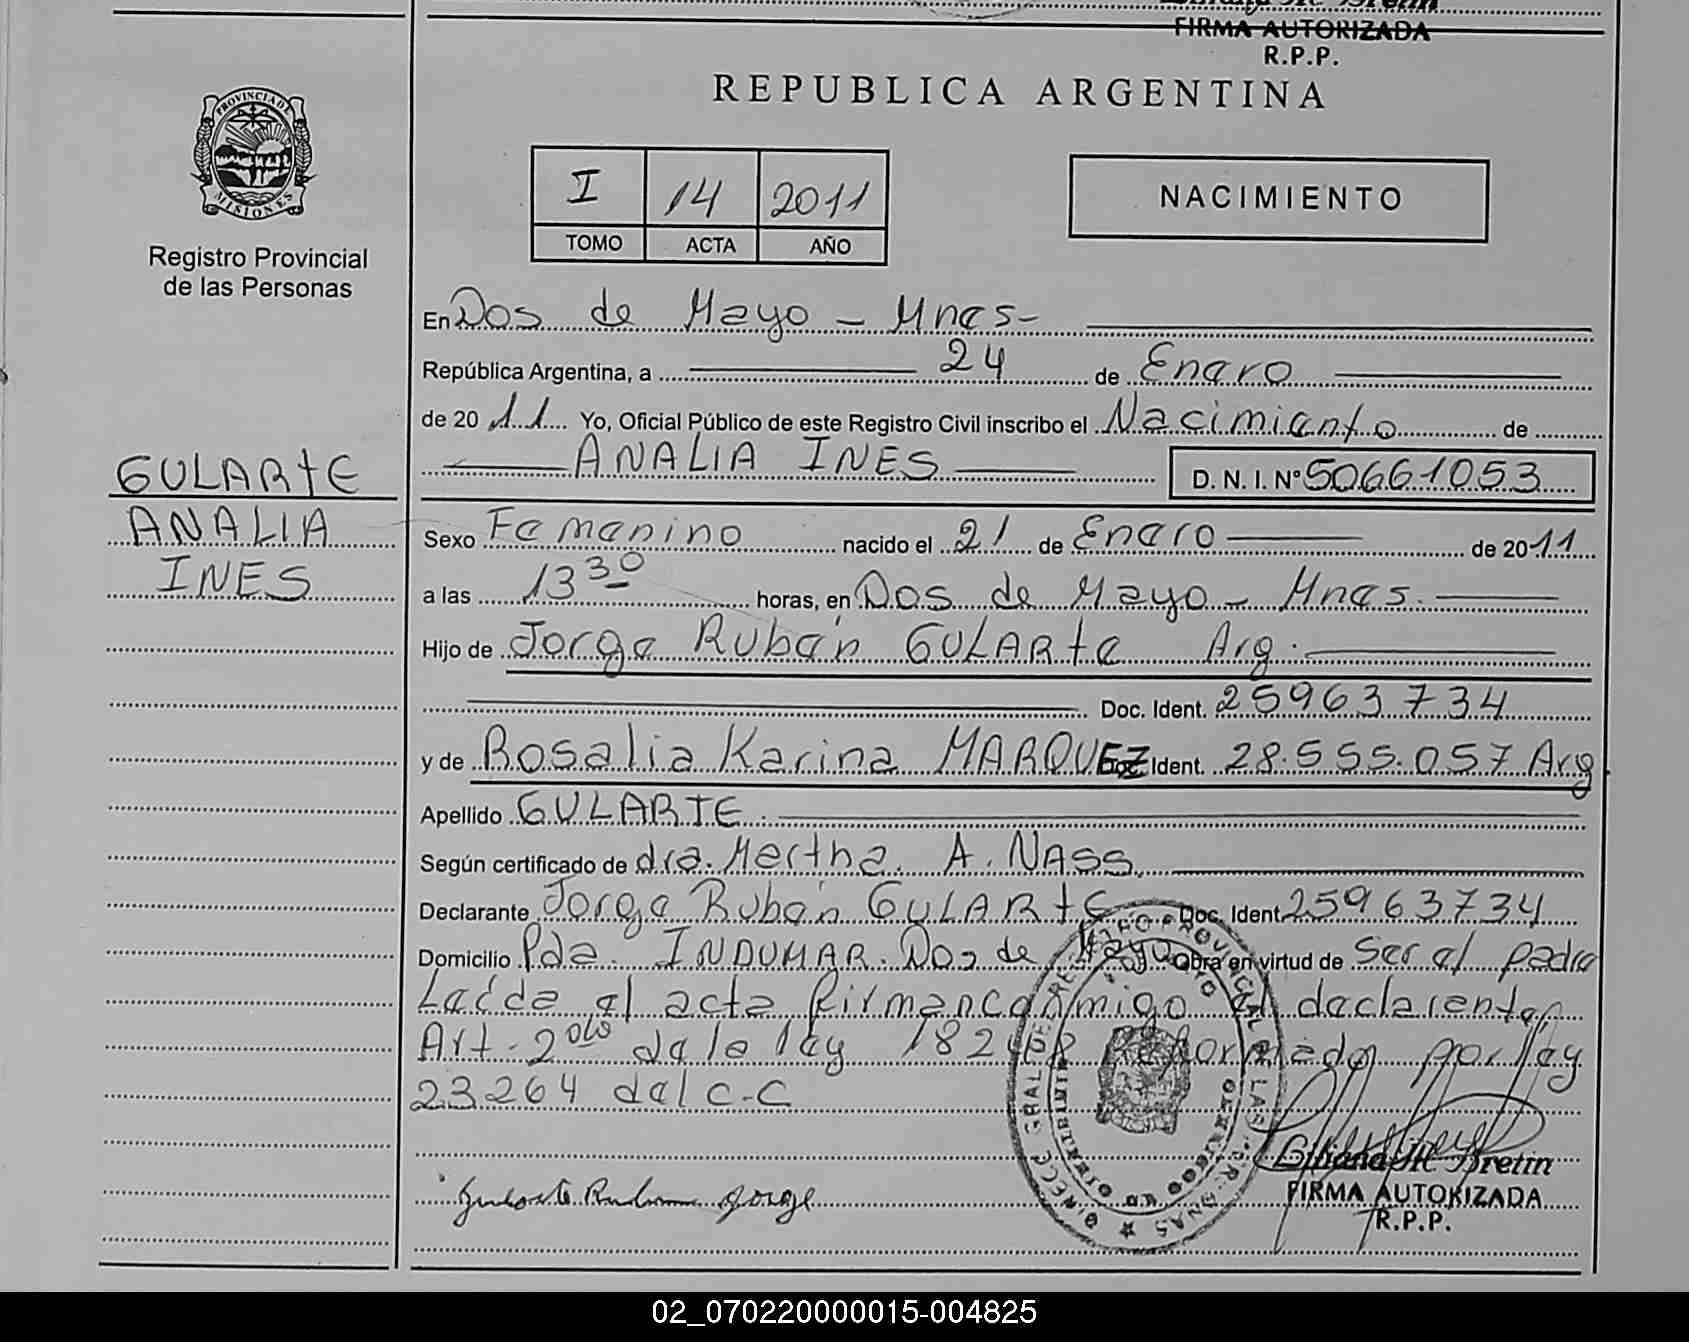 FIRMA AUTORIZADA
R.P.P.
REPUBLICA ARGENTINA
PROVINCIA DE
MISIONES
Registro Provincial
de las Personas
I 14 2011
TOMO ACTA AÑO
NACIMIENTO
En Dos de Mayo - Mnes-
República Argentina, a 24 de Enero
de 2011 Yo, Oficial Público de este Registro Civil inscribo el Nacimiento de
ANALIA INES D. N. I. Nº 50661053
GULARTE
ANALIA
INES
Sexo Femenino nacido el 21 de Enero de 2011
a las 13 30 horas, en Dos de Mayo - Mnes.
Hijo de Jorge Rubén GULARTE Arg.
Doc. Ident. 25963734
y de Rosalia Karina MARQUEZ Doc. Ident. 28.555.057 Arg
Apellido GULARTE
Según certificado de dra. Martha A. NASS
Declarante Jorge Rubén GULARTE Doc. Ident. 25963734
Domicilio Pda. INDUMAR. Dos de Mayo Obra en virtud de Ser el padre
el acta declarante,
Art. 2do de la ley por ley
23264 del C.C
Gularte Ruben Jorge
Liliana Bretin
FIRMA AUTORIZADA
R.P.P.
02_070220000015-004825